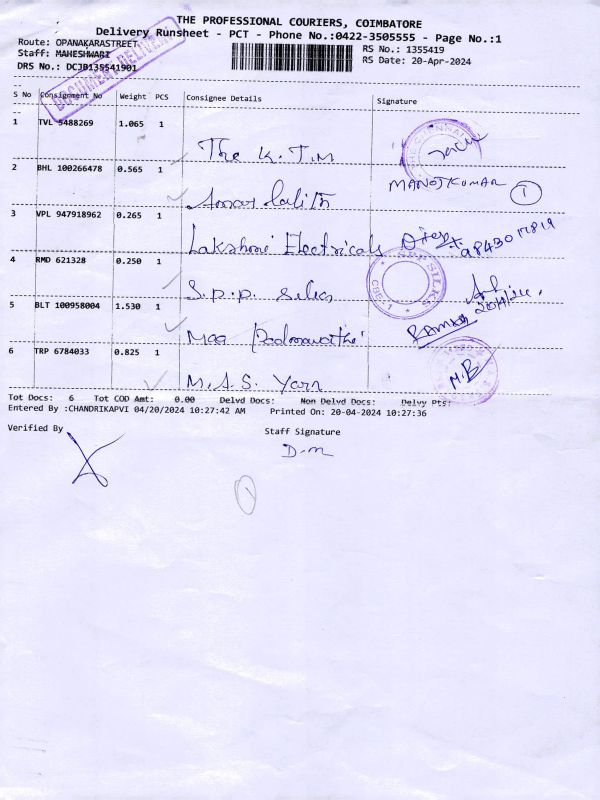 THE PROFESSIONAL COURIERS, COIMBATORE
Delivery Runsheet - PCT - Phone No.:0422-3505555 - Page No.:1
Route: OPANAKARASTREET
RS No.: 1355419
Staff: MAHESHWARI
RS Date: 20-Apr-2024
DRS No.: DCJB135541901
DOCUMENT DELIVERY
S No Consignment No Weight PCS Consignee Details Signature
1 TVL 5488269 1.065 1
The K.T.M
2 BHL 100266478 0.565 1
MANOJKUMAR 1
Amar lalith
3 VPL 947918962 0.265 1
Lakshmi Electricals
4 RMD 621328 0.250 1
SPP SILKS
S.P.P. Silks
5 BLT 100958004 1.530 1
Maa Padmavathi
6 TRP 6784033 0.825 1
M.B
M.A.S. Yarn
Tot Docs: 6 Tot COD Amt: 0.00 Delvd Docs: Non Delvd Docs: Delvy Pts:
Entered By :CHANDRIKAPVI 04/20/2024 10:27:42 AM Printed On: 20-04-2024 10:27:36
Verified By
Staff Signature
D.m